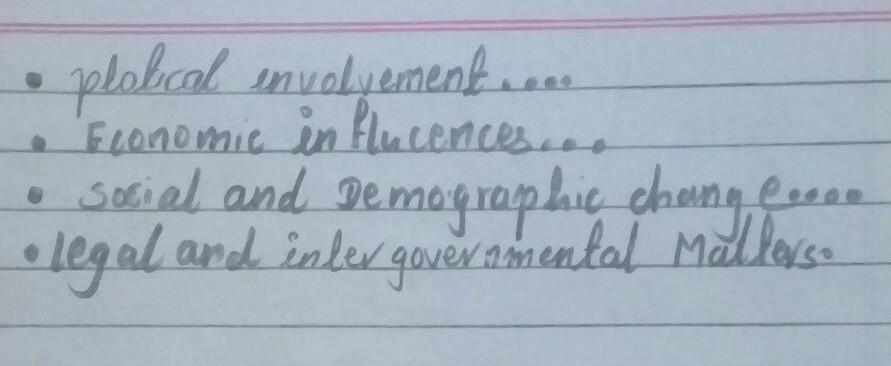 • plotical involvement....
• Economic influcences....
• social and Demographic change.....
• legal and inter governmental Matters.